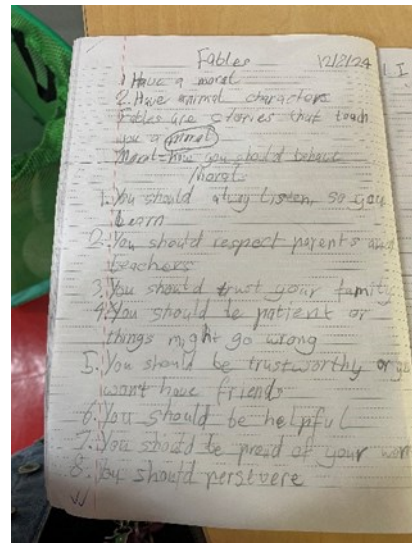 Fables 12/8/24
1. Have a moral
2. Have animal characters
Fables are stories that teach
you a moral
Moral = how you should behave
Morals
1. You should alway listen, so you
learn
2. You should respect parents and
teachers
3. You should trust your family
4. You should be patient or
things might go wrong
5. You should be trustworthy or yo
want have friends
6. You should be helpful
7. You should be proud of your work
8. You should persevere